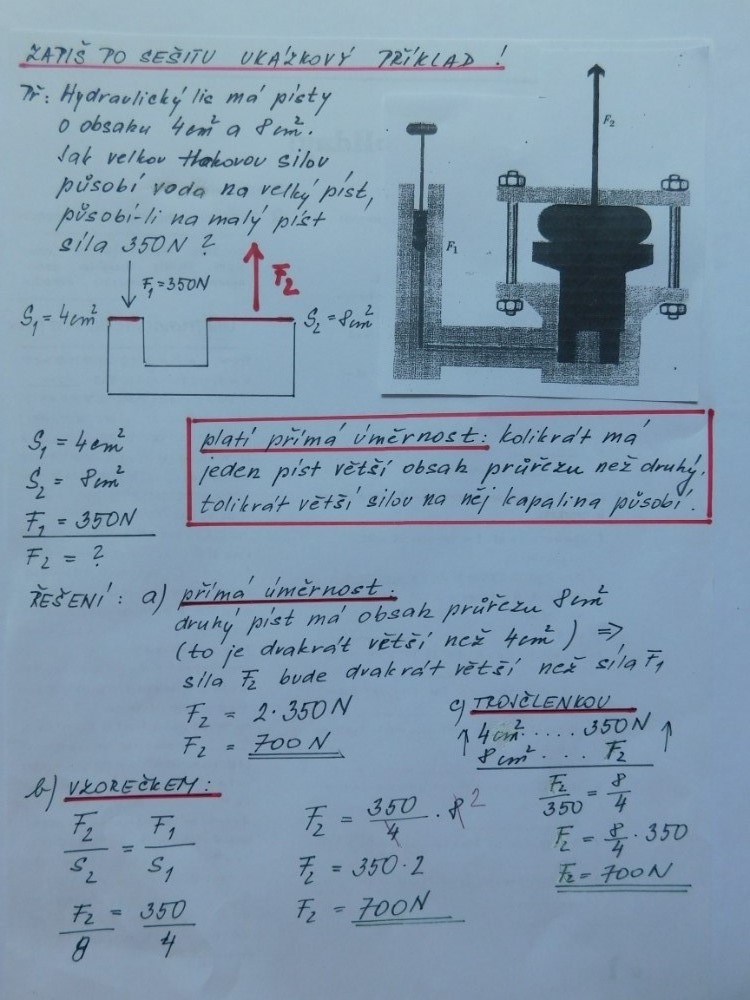 ZAPIŠ DO SEŠITU UKÁZKOVÝ PŘÍKLAD!
Př: Hydraulický lis má písty
o obsahu 4cm² a 8cm².
Jak velkou tlakovou silou
působí voda na velký píst,
působí-li na malý píst
síla 350N?
F₁=350N
F₂
S₁=4cm²
S₂=8cm²
F₂
F₁
S₁ = 4cm²
S₂ = 8cm²
F₁ = 350N
F₂ = ?
platí přímá úměrnost: kolikrát má
jeden píst větší obsah průřezu než druhý,
tolikrát větší silou na něj kapalina působí.
ŘEŠENÍ: a) přímá úměrnost:
druhý píst má obsah průřezu 8cm²
(to je dvakrát větší než 4cm²) ⇒
síla F₂ bude dvakrát větší než síla F₁
F₂ = 2·350N
F₂ = 700N
c) TROJČLENKOU
↑ 4cm² ..... 350N ↑
8cm² .... F₂
F₂/350 = 8/4
F₂ = 8/4 · 350
F₂ = 700N
b) VZOREČKEM:
F₂/S₂ = F₁/S₁
F₂/8 = 350/4
F₂ = 350/4 · 8 2
F₂ = 350·2
F₂ = 700N